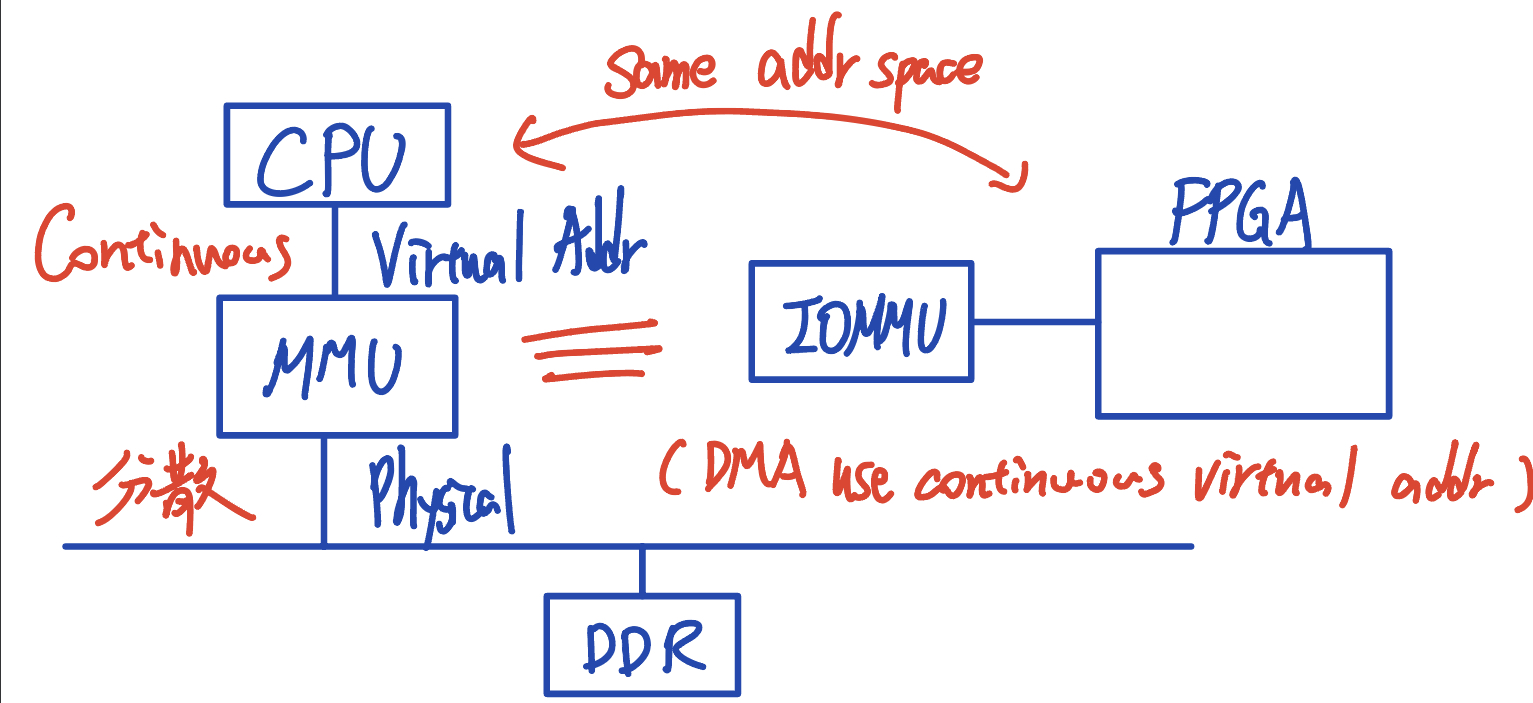 Same addr space
CPU
FPGA
Continuous
Virtual Addr
MMU
IOMMU
分散
Physical
(DMA use continuous virtual addr)
DDR